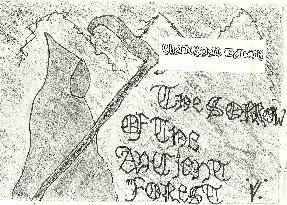 The Sorrow
Of The
Ancient
Forest
V.